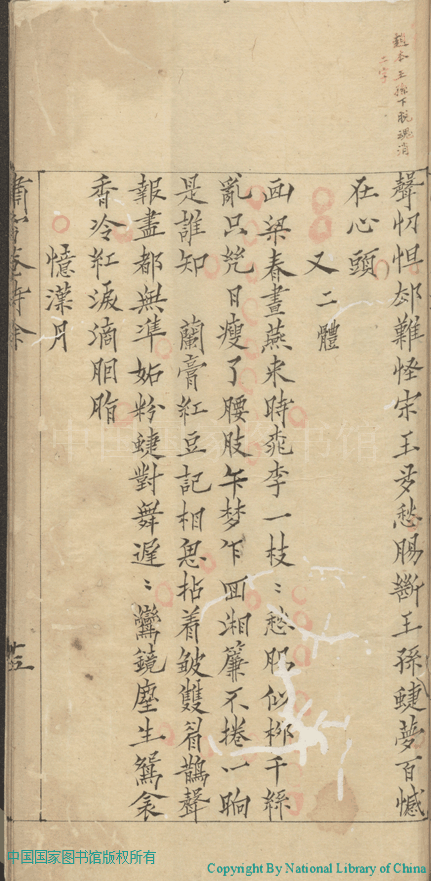 趙本王孫下脫魂消
二字
聲忉怛却難怪宋王多愁腸斷王孫蝶夢百憾
在心頭
又二體
画梁春晝燕来時兆李一枝〻愁肥似柳千絲
亂只凭日瘦了腰肢午梦乍回湘簾不捲一晌
是誰知 蘭膏紅豆記相思拈着皱雙眉鵲聲
報盡都無準妬粉蜨對舞遲〻鸞鏡塵生鴛衾
香冷紅淚滴胭脂
憶漢月
中国国家图书馆
中国国家图书馆版权所有
Copyright By National Library of China